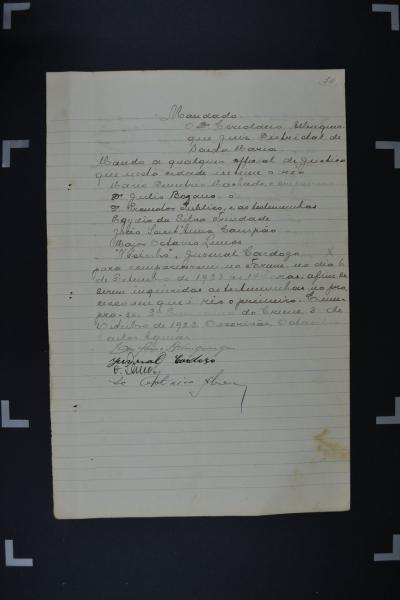 50
Mandado
O Dr Coriolano Albuquer-
que, Juiz Districtal de
Santa Maria
Mando a qualquer official de Justiça
que nesta cidade intime o réo
Mario Machado, e
Dr Julio Bozano, o
Dr Promotor Publico, e as testemunhas
Egydio da Silva Trindade
João Sant'Anna Campão
Major Octavio Lemos
"Néstinho", Juvenal Cardozo X
para comparecerem no Forum, no dia 6
de de 1923 ás horas, afim de
serem inquiridas as testemunhas no pro-
cesso em que é réo o primeiro. Cum-
pra-se. do Crime 3 de
Outubro de 1923. O escrivão
Carlos
Albuquerque
Juvenal Cardozo
O. Lemos